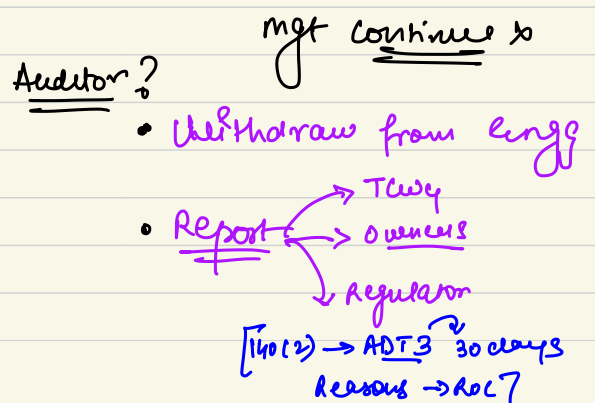 mgt continue to
Auditor?
• Withdraw from engg
• Report → TCWG
→ Owners
→ Regulator
[140(2) → ADT3 → 30 days
Reasons → ROC]